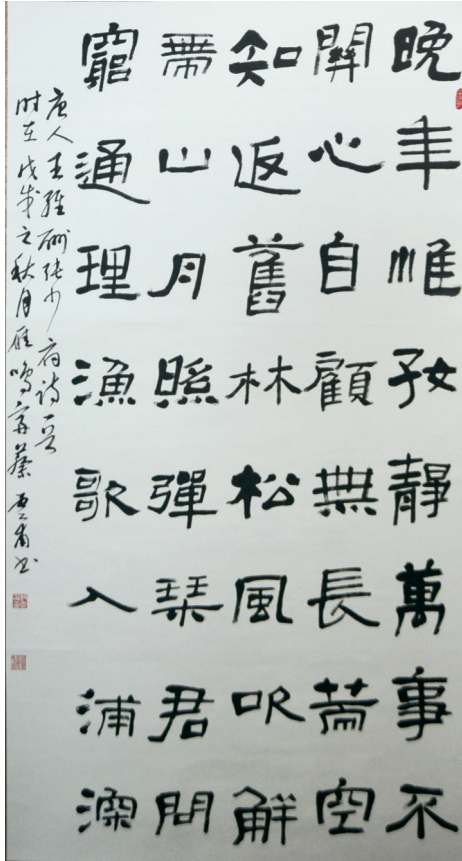 晚年惟好靜萬事不
關心自顧無長策空
知返舊林松風吹解
帶山月照彈琴君問
窮通理漁歌入浦深
唐人王維酬張少府詩一首
时在戊戌之秋月雁鳴斋蔡甫书